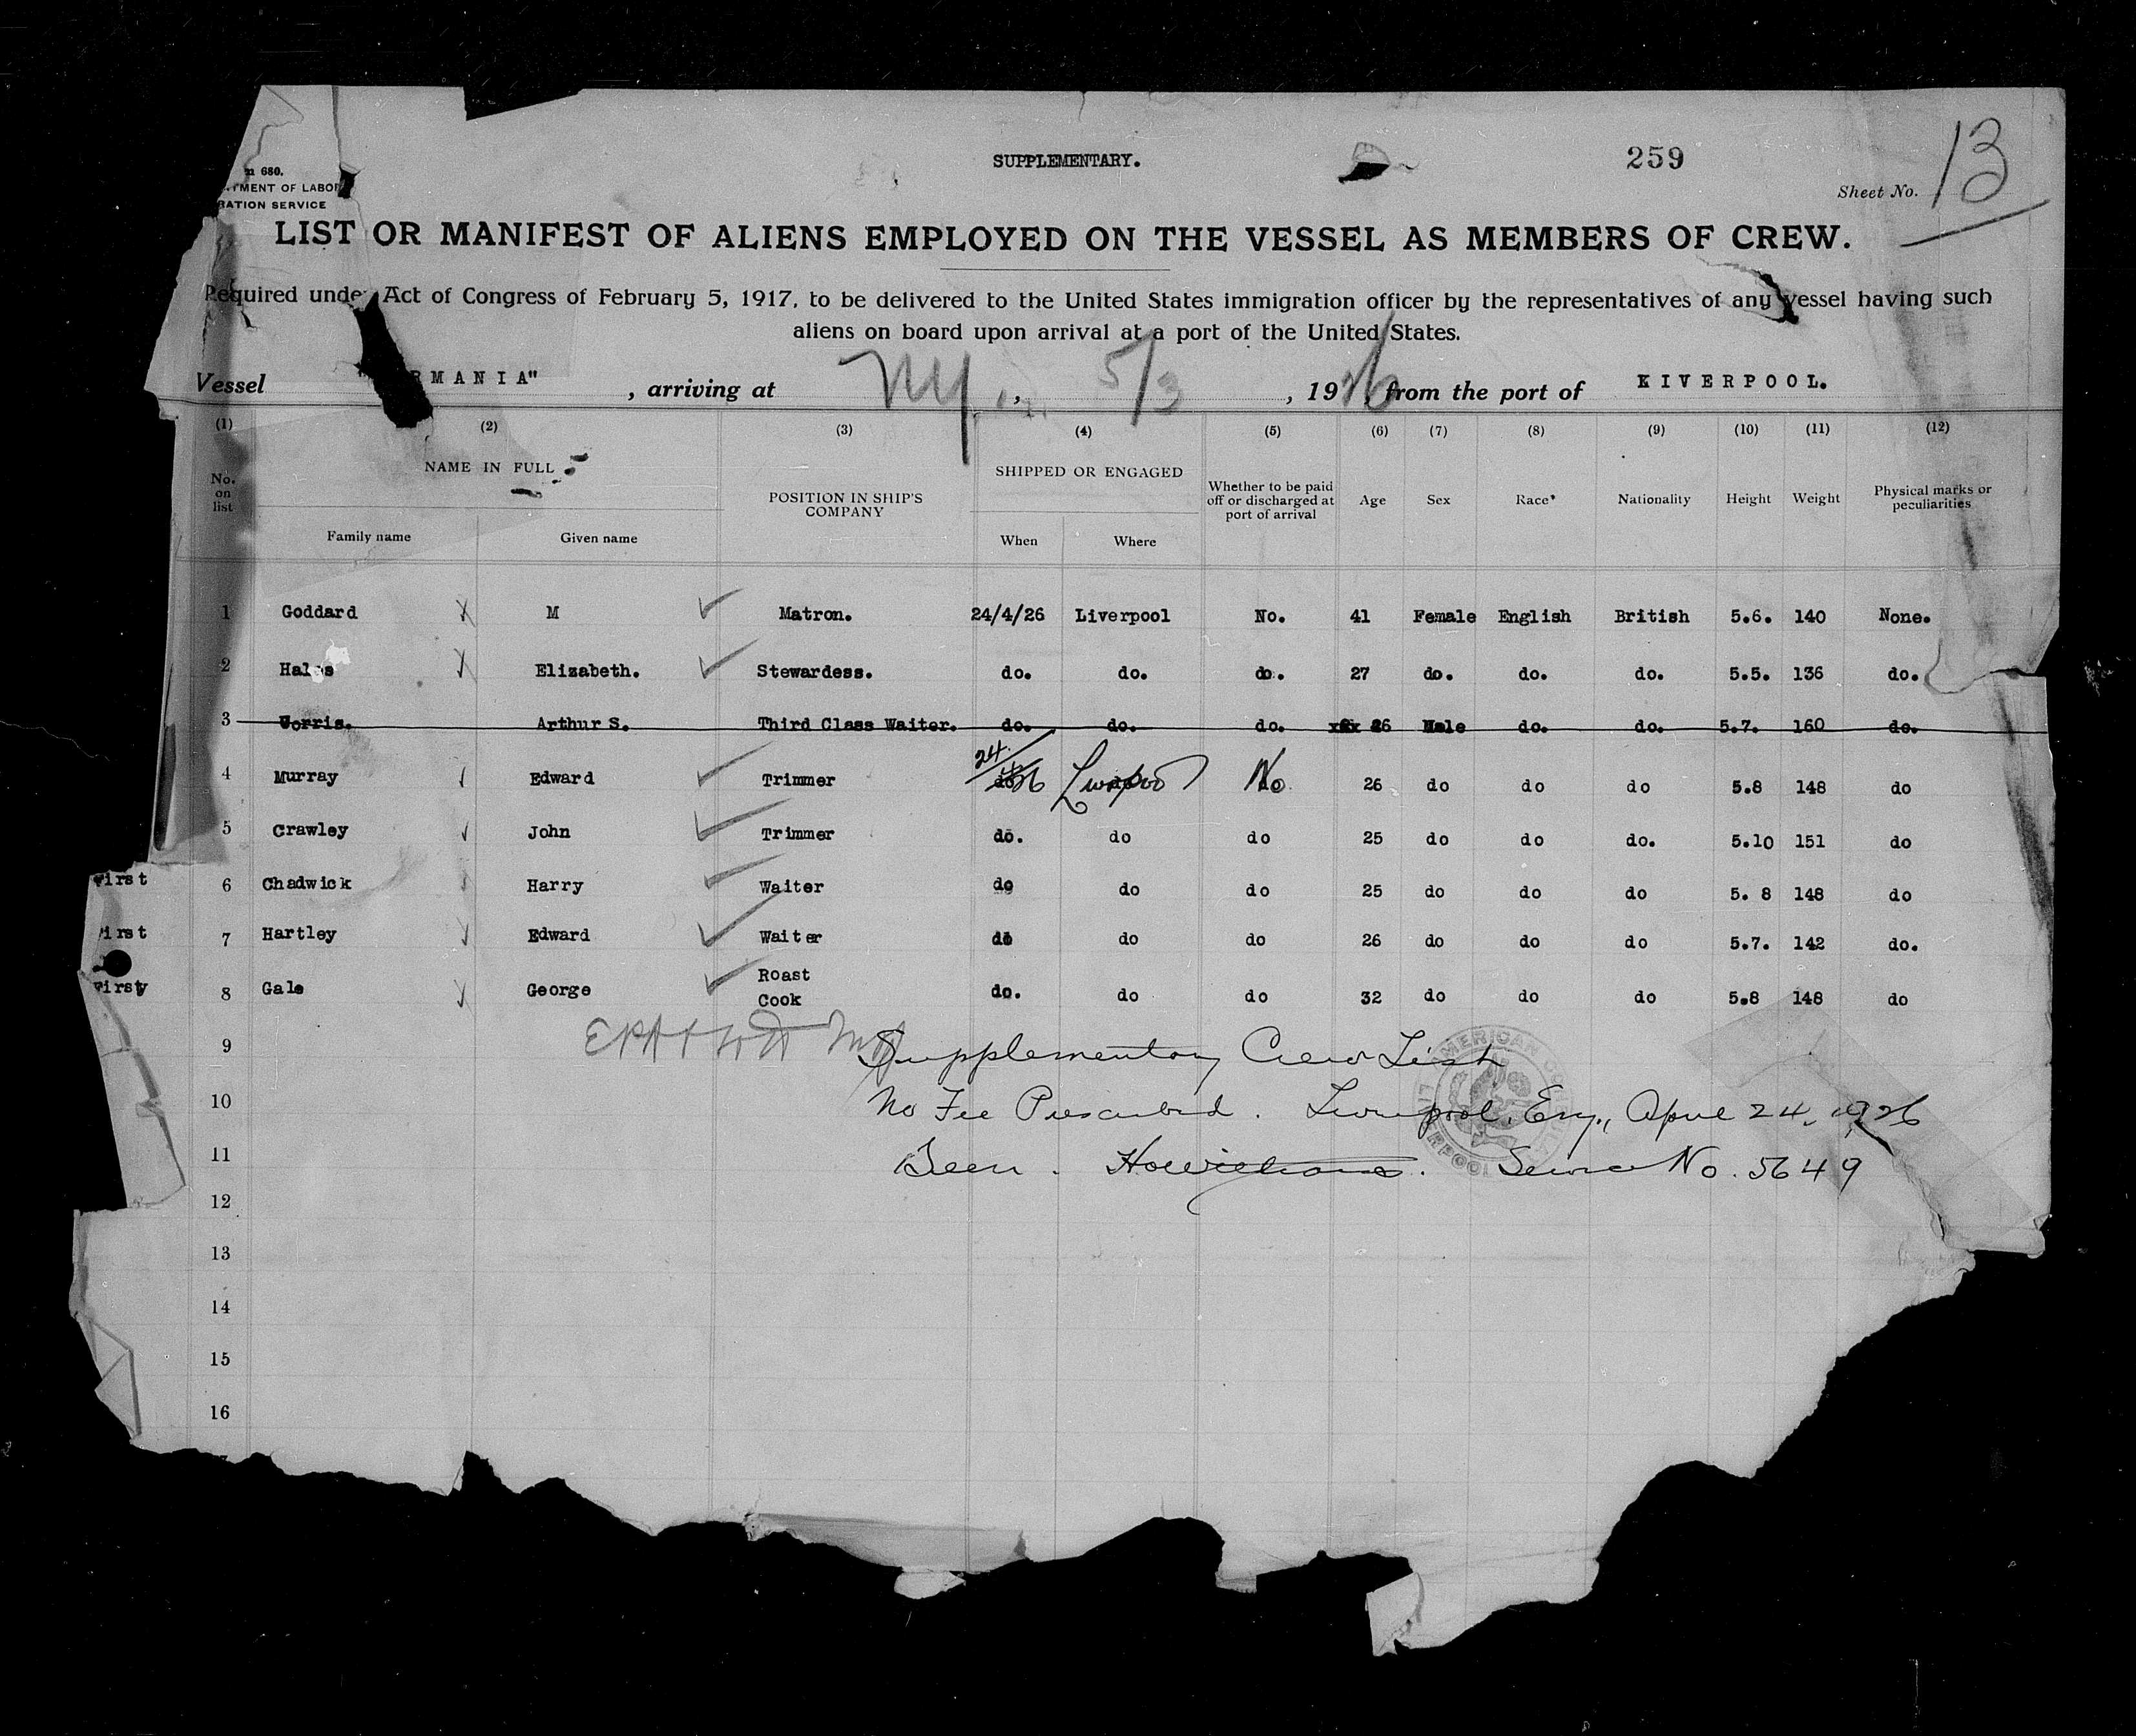 SUPPLEMENTARY.
259
680.
TMENT OF LABOR
RATION SERVICE
Sheet No. 13
LIST OR MANIFEST OF ALIENS EMPLOYED ON THE VESSEL AS MEMBERS OF CREW.
Required under Act of Congress of February 5, 1917, to be delivered to the United States immigration officer by the representatives of any vessel having such
aliens on board upon arrival at a port of the United States.
Vessel "RMANIA" , arriving at NY , 5/3 , 1926 from the port of KIVERPOOL.
(1) (2) (3) (4) (5) (6) (7) (8) (9) (10) (11) (12)
No. on list NAME IN FULL POSITION IN SHIP'S COMPANY SHIPPED OR ENGAGED Whether to be paid off or discharged at port of arrival Age Sex Race* Nationality Height Weight Physical marks or peculiarities
Family name Given name When Where
1 Goddard M Matron. 24/4/26 Liverpool No. 41 Female English British 5.6. 140 None.
2 Hales Elizabeth. Stewardess. do. do. do. 27 do. do. do. 5.5. 136 do.
3 Arthur S. Third Class Waiter. do. do. do. 26 Male do. do. 5.7. 160 do.
4 Murray Edward Trimmer 24/4/26 Liverpool No 26 do do do 5.8 148 do
5 Crawley John Trimmer do. do do 25 do do do. 5.10 151 do
First 6 Chadwick Harry Waiter do do do 25 do do do 5. 8 148 do
First 7 Hartley Edward Waiter do do do 26 do do do 5.7. 142 do.
Firsty 8 Gale George Roast Cook do. do do 32 do do do 5.8 148 do
9 Supplementary Crew List
10 No Fee Prescribed. Liverpool, Eng., April 24, 1926
11 Seen. Service No. 5649
12
13
14
15
16